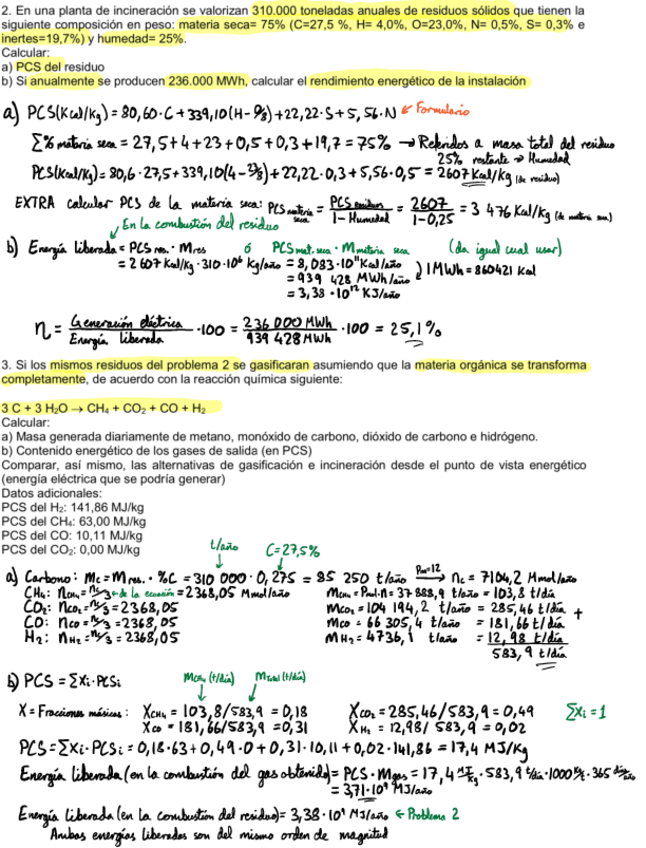 2. En una planta de incineración se valorizan 310.000 toneladas anuales de residuos sólidos que tienen la
siguiente composición en peso: materia seca= 75% (C=27,5 %, H= 4,0%, O=23,0%, N= 0,5%, S= 0,3% e
inertes=19,7%) y humedad= 25%.
Calcular:
a) PCS del residuo
b) Si anualmente se producen 236.000 MWh, calcular el rendimiento energético de la instalación
a) PCS(Kcal/Kg) = 80,60·C + 339,10(H - O/8) + 22,22·S + 5,56·N ← Formulario
Σ% materia seca = 27,5+4+23+0,5+0,3+19,7 = 75% → Referidos a masa total del residuo
25% restante → Humedad
PCS(Kcal/Kg) = 80,6·27,5 + 339,10(4 - 23/8) + 22,22·0,3 + 5,56·0,5 = 2607 Kcal/Kg (de residuo)
EXTRA calcular PCS de la materia seca: PCS materia seca = PCS residuos / 1 - Humedad = 2607 / 1-0,25 = 3 476 Kcal/Kg (de materia seca)
En la combustión del residuo
b) Energía liberada = PCS res. · Mres ó PCS mat. seca · M materia seca (da igual cual usar)
= 2 607 Kcal/Kg · 310·10⁶ Kg/año = 8,083·10¹¹ Kcal/año
= 939 428 MWh/año } 1MWh = 860421 Kcal
= 3,38·10¹² KJ/año
η = Generación eléctrica / Energía liberada · 100 = 236 000 MWh / 939 428 MWh · 100 = 25,1%
3. Si los mismos residuos del problema 2 se gasificaran asumiendo que la materia orgánica se transforma
completamente, de acuerdo con la reacción química siguiente:
3 C + 3 H₂O → CH₄ + CO₂ + CO + H₂
Calcular:
a) Masa generada diariamente de metano, monóxido de carbono, dióxido de carbono e hidrógeno.
b) Contenido energético de los gases de salida (en PCS)
Comparar, así mismo, las alternativas de gasificación e incineración desde el punto de vista energético
(energía eléctrica que se podría generar)
Datos adicionales:
PCS del H₂: 141,86 MJ/kg
PCS del CH₄: 63,00 MJ/kg
PCS del CO: 10,11 MJ/kg
PCS del CO₂: 0,00 MJ/kg
t/año C=27,5%
a) Carbono: Mc = Mres. · %C = 310 000 · 0,275 = 85 250 t/año Pm=12 → nc = 7104,2 Mmol/año
CH₄: nCH₄ = nc/3 ← de la ecuación = 2368,05 Mmol/año MCH₄ = Pmol·n = 37 888,9 t/año = 103,8 t/día
CO₂: nCO₂ = nc/3 = 2368,05 MCO₂ = 104 194,2 t/año = 285,46 t/día +
CO: nCO = nc/3 = 2368,05 MCO = 66 305,4 t/año = 181,66 t/día
H₂: nH₂ = nc/3 = 2368,05 MH₂ = 4736,1 t/año = 12,98 t/día
583,9 t/día
b) PCS = Σxi·PCSi MCH₄ (t/día) MTotal (t/día)
X = Fracciones másicas: XCH₄ = 103,8/583,9 = 0,18 XCO₂ = 285,46/583,9 = 0,49 Σxi = 1
XCO = 181,66/583,9 = 0,31 XH₂ = 12,98/583,9 = 0,02
PCS = Σxi·PCSi = 0,18·63 + 0,49·0 + 0,31·10,11 + 0,02·141,86 = 17,4 MJ/Kg
Energía liberada (en la combustión del gas obtenido) = PCS·Mgas = 17,4 MJ/Kg · 583,9 t/día · 1000 Kg/t · 365 día/año
= 3,71·10⁹ MJ/año
Energía liberada (en la combustión del residuo) = 3,38·10⁹ MJ/año ← Problema 2
Ambas energías liberadas son del mismo orden de magnitud